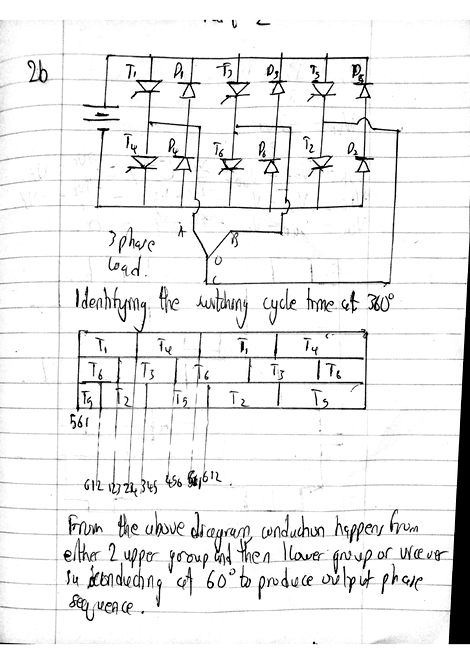 2b
T1 D1 T3 D3 T5 D5
T4 D4 T6 D6 T2 D2
A B
O
C
3 phase
load.
Identifying the switching cycle time at 360°
T1 T4 T1 T4
T6 T3 T6 T3 T6
T5 T2 T5 T2 T5
561
612 123 234 345 456 561 612
From the above diagram, conduction happens from
either 2 upper group and then 1 lower group or
conducting at 60° to produce output phase
sequence.